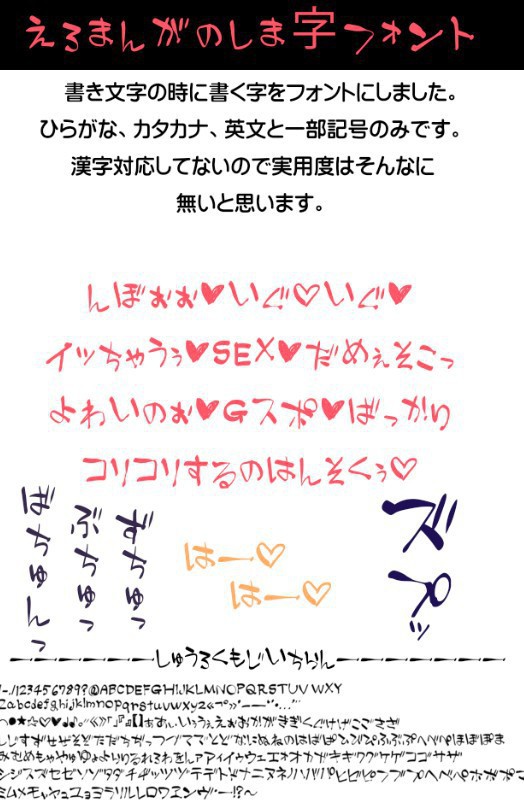 えろまんがのしま字フォント
書き文字の時に書く字をフォントにしました。
ひらがな、カタカナ、英文と一部記号のみです。
漢字対応してないので実用度はそんなに
無いと思います。
んぼぉぉ♥いぐ♡いぐ♥
イッちゃうぅ♥SEX♥だめぇそこっ
よわいのぉ♥Gスポ♥ばっかり
コリコリするのはんそくぅ♡
ずちゅっ
ぶちゅっ
ばちゅんっ
はー♡
はー♡
ズペッ
しゅうろくもじいちらん
!-./123456789?@ABCDEFGHIJKLMNOPQRSTUVWXY
Zabcdefghijklmnopqrstuvwxyz